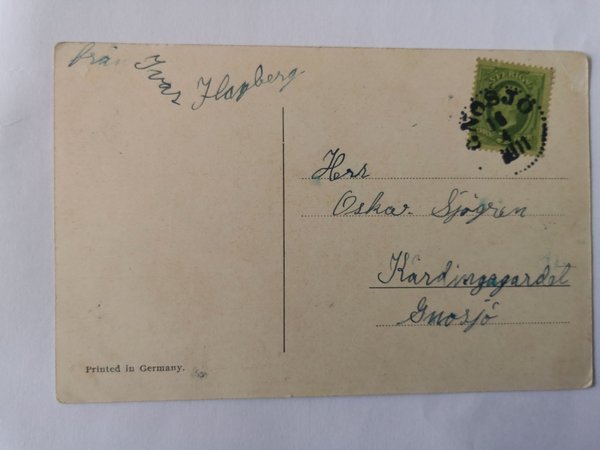 från Ivar Hagberg
SVERIGE
GNOSJÖ
16
4
1911
Herr
Oskar Sjögren
Kärdingagardet
Gnosjö
Printed in Germany.